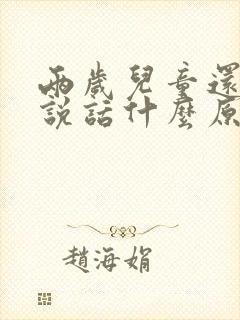 兩歲兒童還
說話什麼原
趙海娟